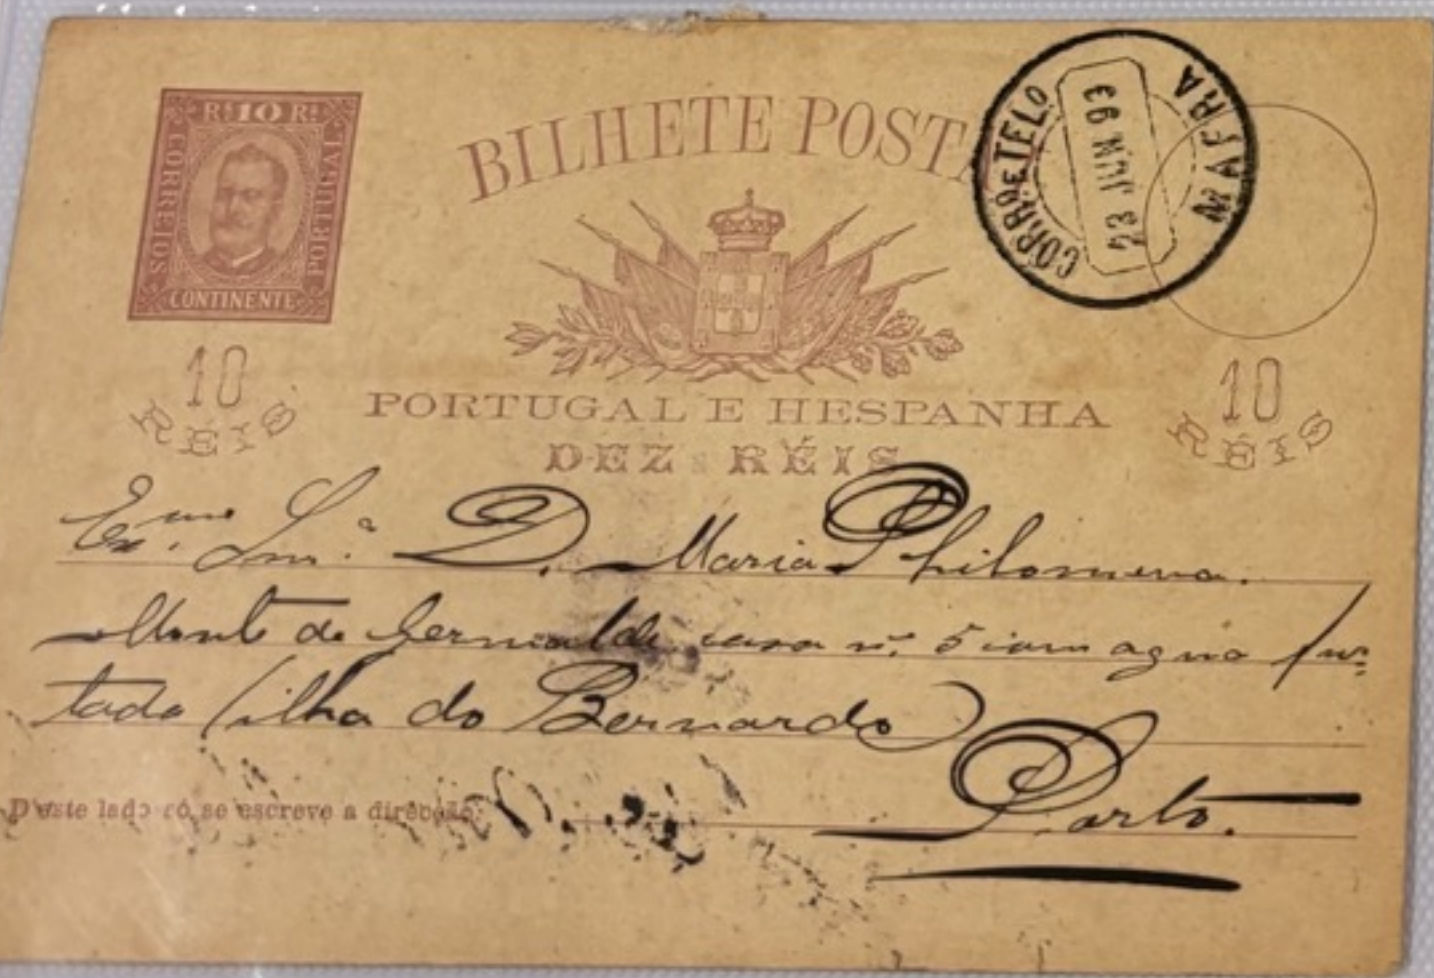 Rs 10 Rs
CORREIOS
PORTUGAL
CONTINENTE
BILHETE POSTA
CORRO E TELO
23 JUN 93
MAFRA
10
REIS
PORTUGAL E HESPANHA
DEZ RÉIS
10
RÉIS
Exma. Snr.ª D. Maria Philomena.
Monte de casa n.
tada (ilha do Bernardo)
D'este lado só se escreve a direcção.
Porto.